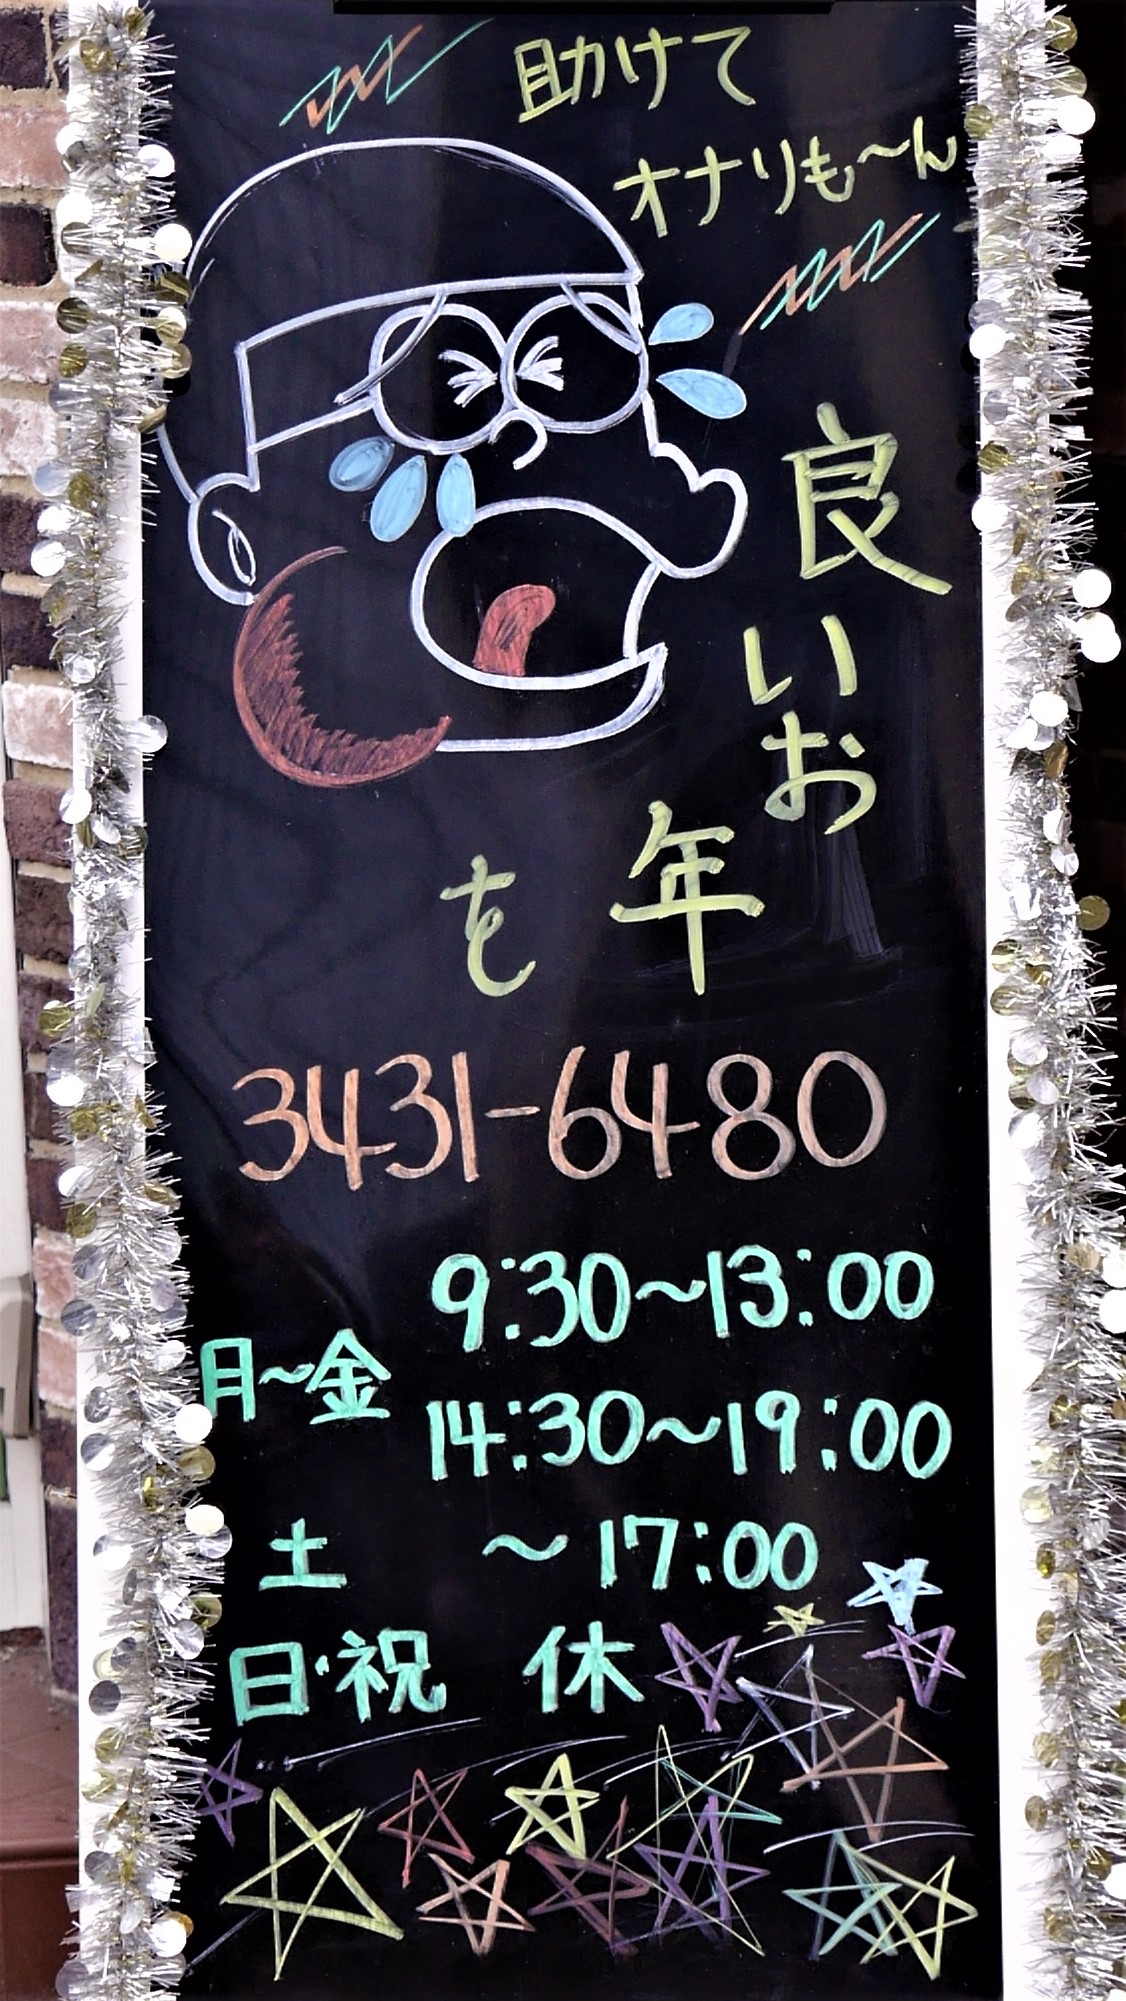 助けて
オナリも〜ん
良いお
年
を
3431-6480
月〜金 9:30〜13:00
14:30〜19:00
土 〜17:00
日・祝 休